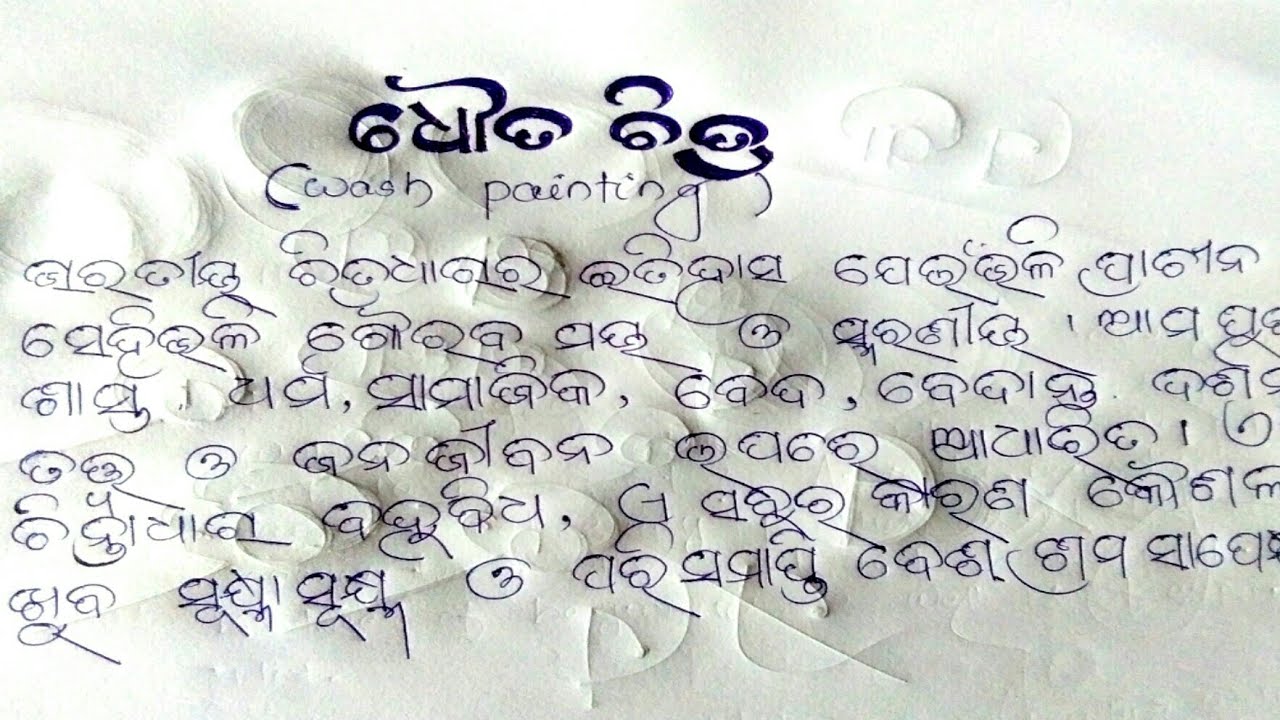 ଧୌତ ଚିତ୍ର
(wash painting)
ଭାରତୀୟ ଚିତ୍ରଧାରାର ଇତିହାସ ଯେଉଁଭଳି ପ୍ରାଚୀନ
ସେହିଭଳି ଗୌରବ ମୟ ଓ ସ୍ମରଣୀୟ । ଆମ
ଶାସ୍ତ୍ର । ଧର୍ମ, ସାମାଜିକ, ବେଦ, ବେଦାନ୍ତ
ତତ୍ତ୍ୱ ଓ ଜନ ଜୀବନ ଉପରେ ଆଧାରିତ । ଏ
ଚିନ୍ତାଧାରା ବହୁବିଧ, ଏ ସବୁର କାରଣ କୌଶଳ
ଖୁବ ସୂକ୍ଷ୍ମା ସୂକ୍ଷ୍ମ ଓ ପରିସମାପ୍ତି ବେଶ୍ ଶ୍ରମ